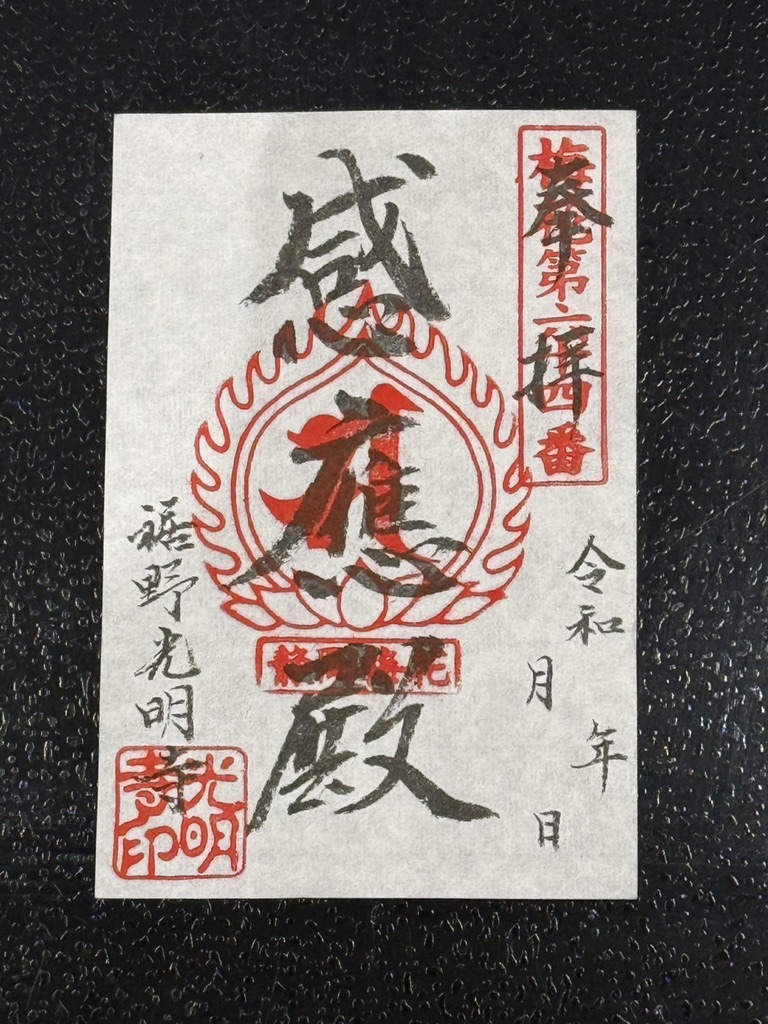 奉拝
梅花第二四番
令和
年
月
日
感應殿
静岡梅花
裾野光明寺
光明
寺印